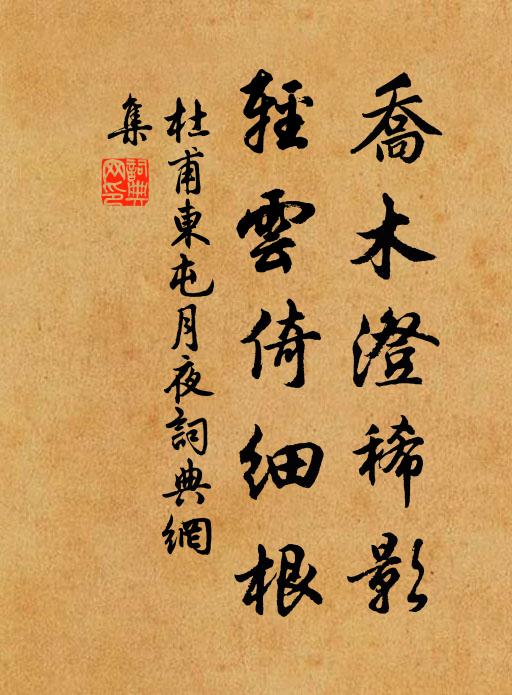 喬木澄稀影
輕雲倚細根
杜甫東屯月夜詞典網
集
詞典
網印